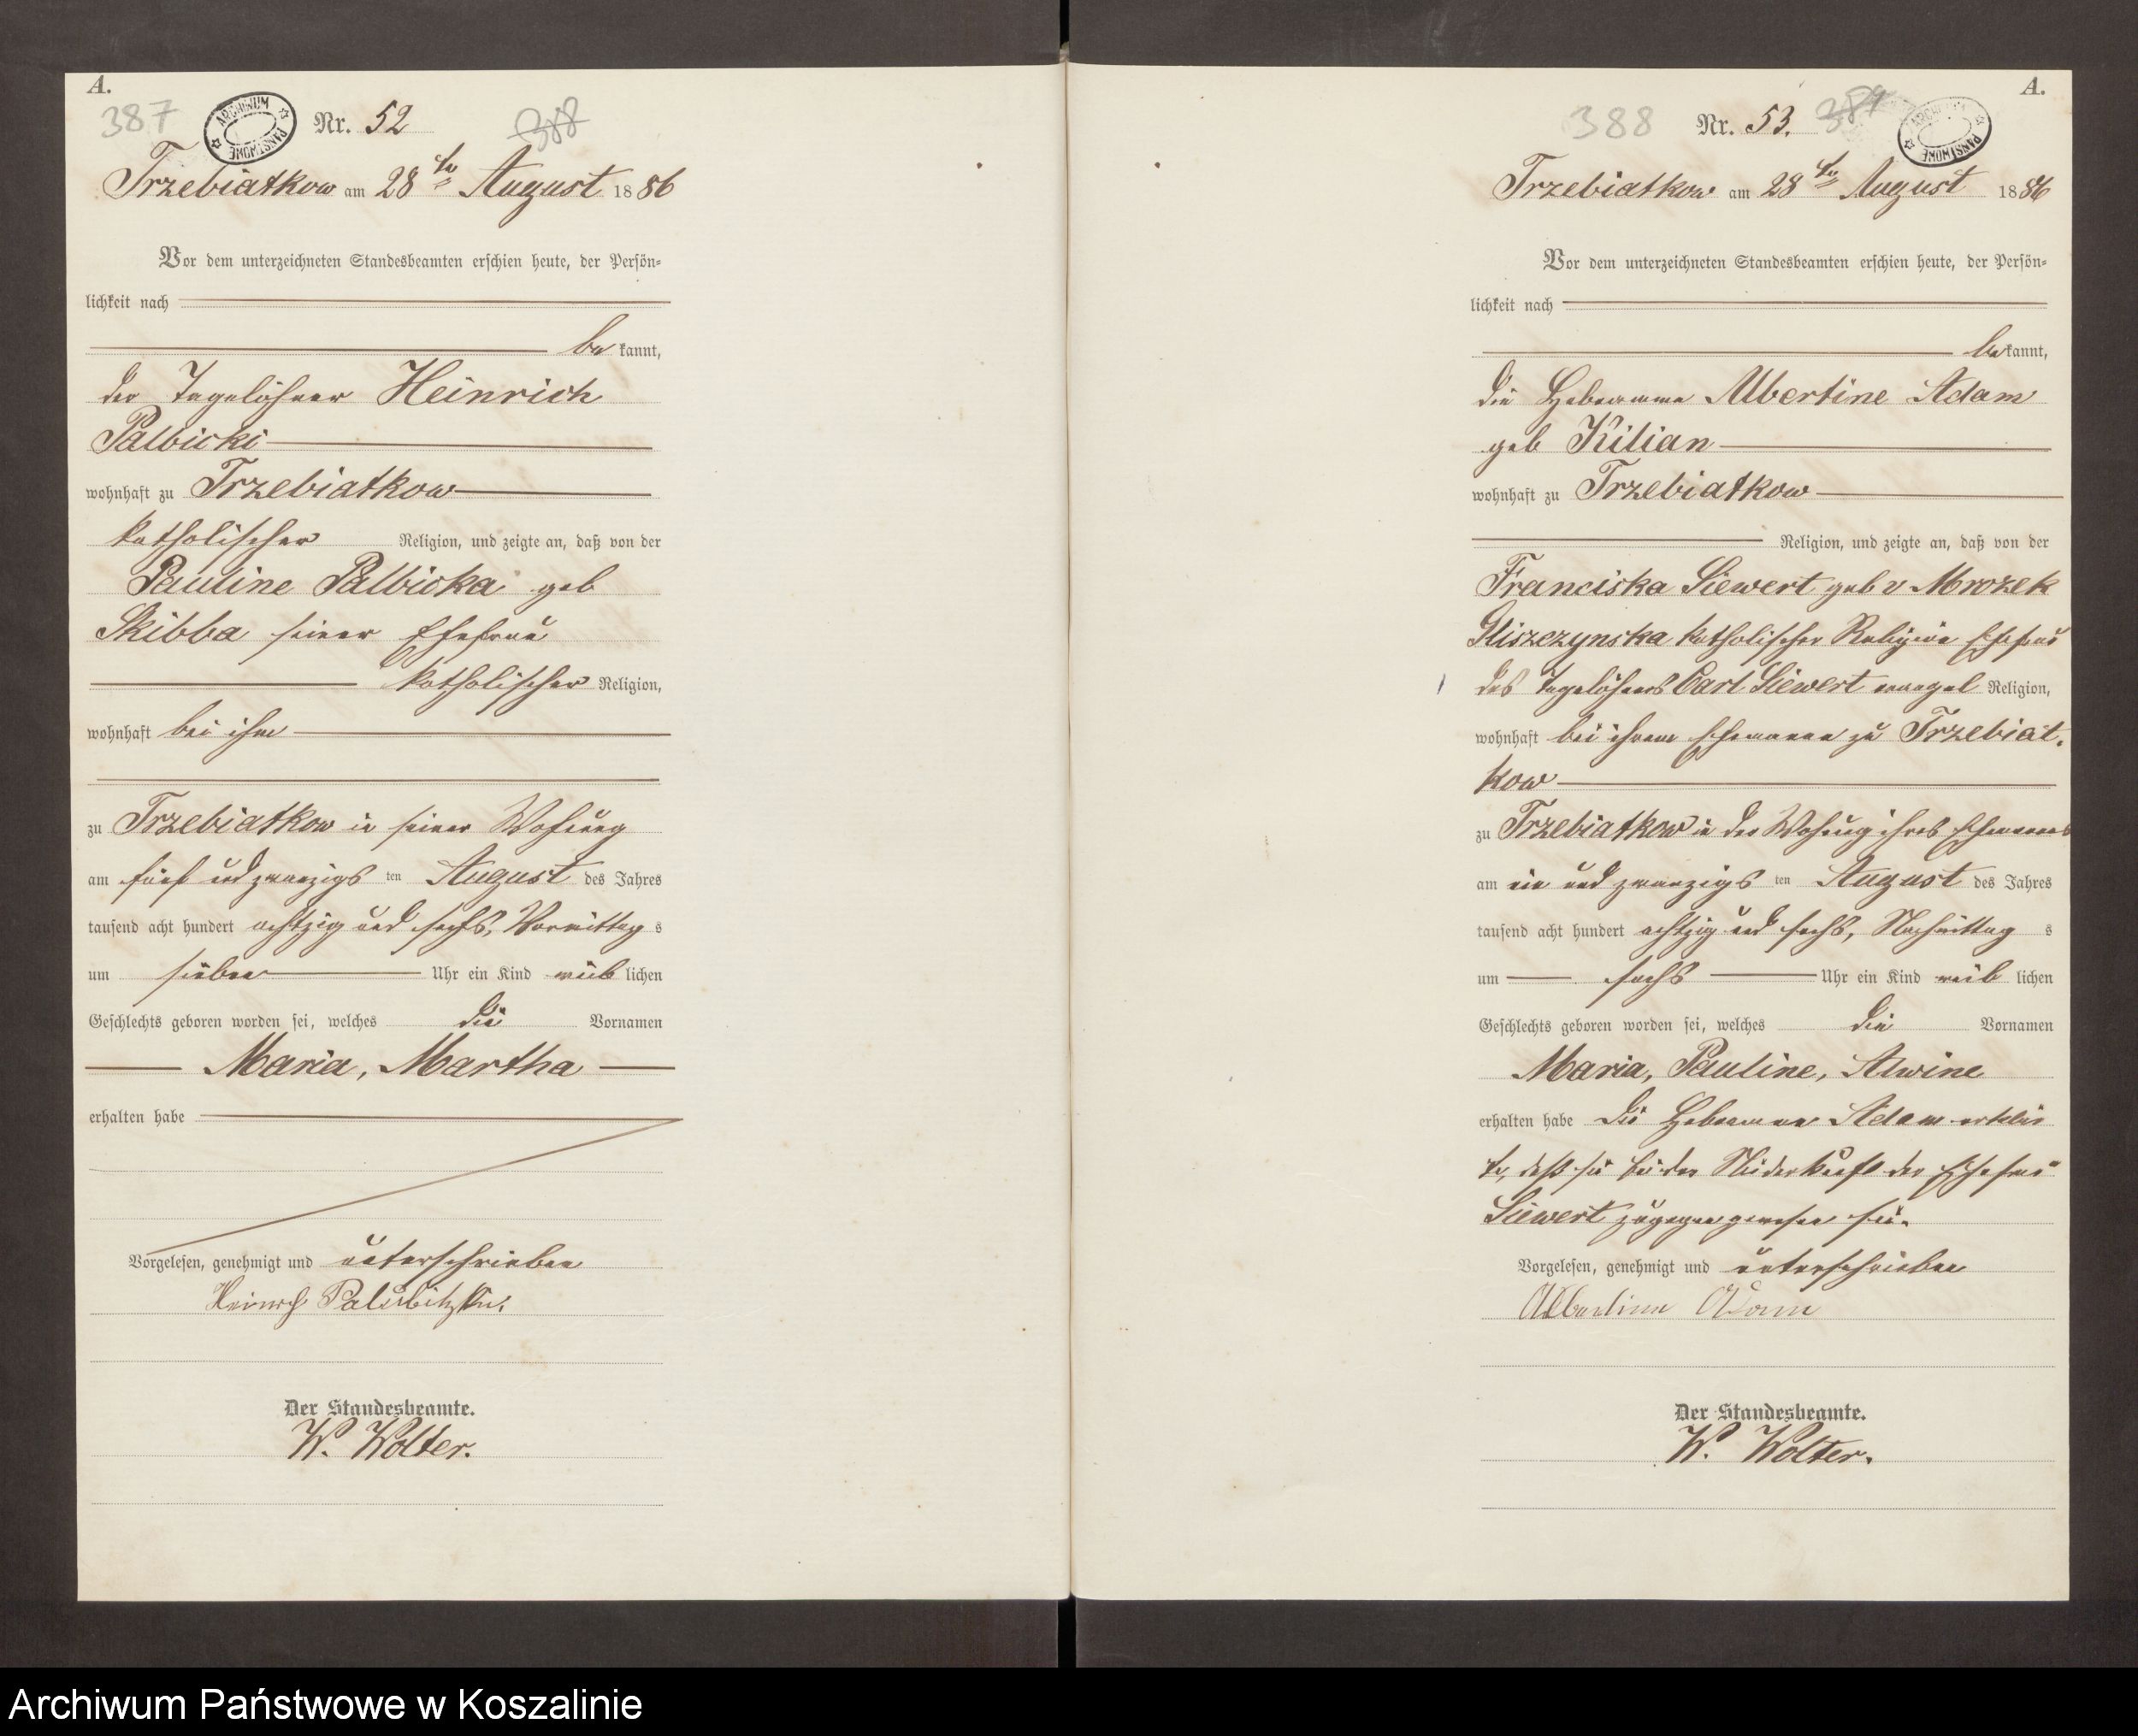 A.
387
ARCHIWUM PAŃSTWOWE
Nr. 52
388
Trzebiatkow am 28ten August 1886
Vor dem unterzeichneten Standesbeamten erschien heute, der Persön-
lichkeit nach
bekannt,
der Tagelöhner Heinrich
Palbicki
wohnhaft zu Trzebiatkow
katholischer Religion, und zeigte an, daß von der
Pauline Palbicka geb
Skibba seiner Ehefrau
katholischer Religion,
wohnhaft bei ihm
zu Trzebiatkow in seiner Wohnung
am fünf und zwanzigsten August des Jahres
tausend acht hundert achtzig und sechs, Vormittags
um sieben Uhr ein Kind weiblichen
Geschlechts geboren worden sei, welches die Vornamen
Maria, Martha
erhalten habe
Vorgelesen, genehmigt und unterschrieben
Palubitzki.
Der Standesbeamte.
W. Wolter.
A.
388
Nr. 53.
389
ARCHIWUM PAŃSTWOWE
Trzebiatkow am 28ten August 1886
Vor dem unterzeichneten Standesbeamten erschien heute, der Persön-
lichkeit nach
bekannt,
die Hebeamme Albertine Adam
geb Kilian
wohnhaft zu Trzebiatkow
Religion, und zeigte an, daß von der
Franciska Siewert geb v Mrozek
Gliszczynska katholischer Religion Ehefrau
des Tagelöhners Carl Siewert evangel Religion,
wohnhaft bei ihrem Ehemanne zu Trzebiat-
kow
zu Trzebiatkow in der Wohnung ihres Ehemannes
am ein und zwanzigsten August des Jahres
tausend acht hundert achtzig und sechs, Nachmittags
um sechs Uhr ein Kind weiblichen
Geschlechts geboren worden sei, welches die Vornamen
Maria, Pauline, Alwine
erhalten habe Die Hebeamme Adam erklär
te, daß sie bei der Niederkunft der Ehefrau
Siewert zugegen gewesen sei.
Vorgelesen, genehmigt und unterschrieben
Albertine Adam
Der Standesbeamte.
W. Wolter.
Archiwum Państwowe w Koszalinie